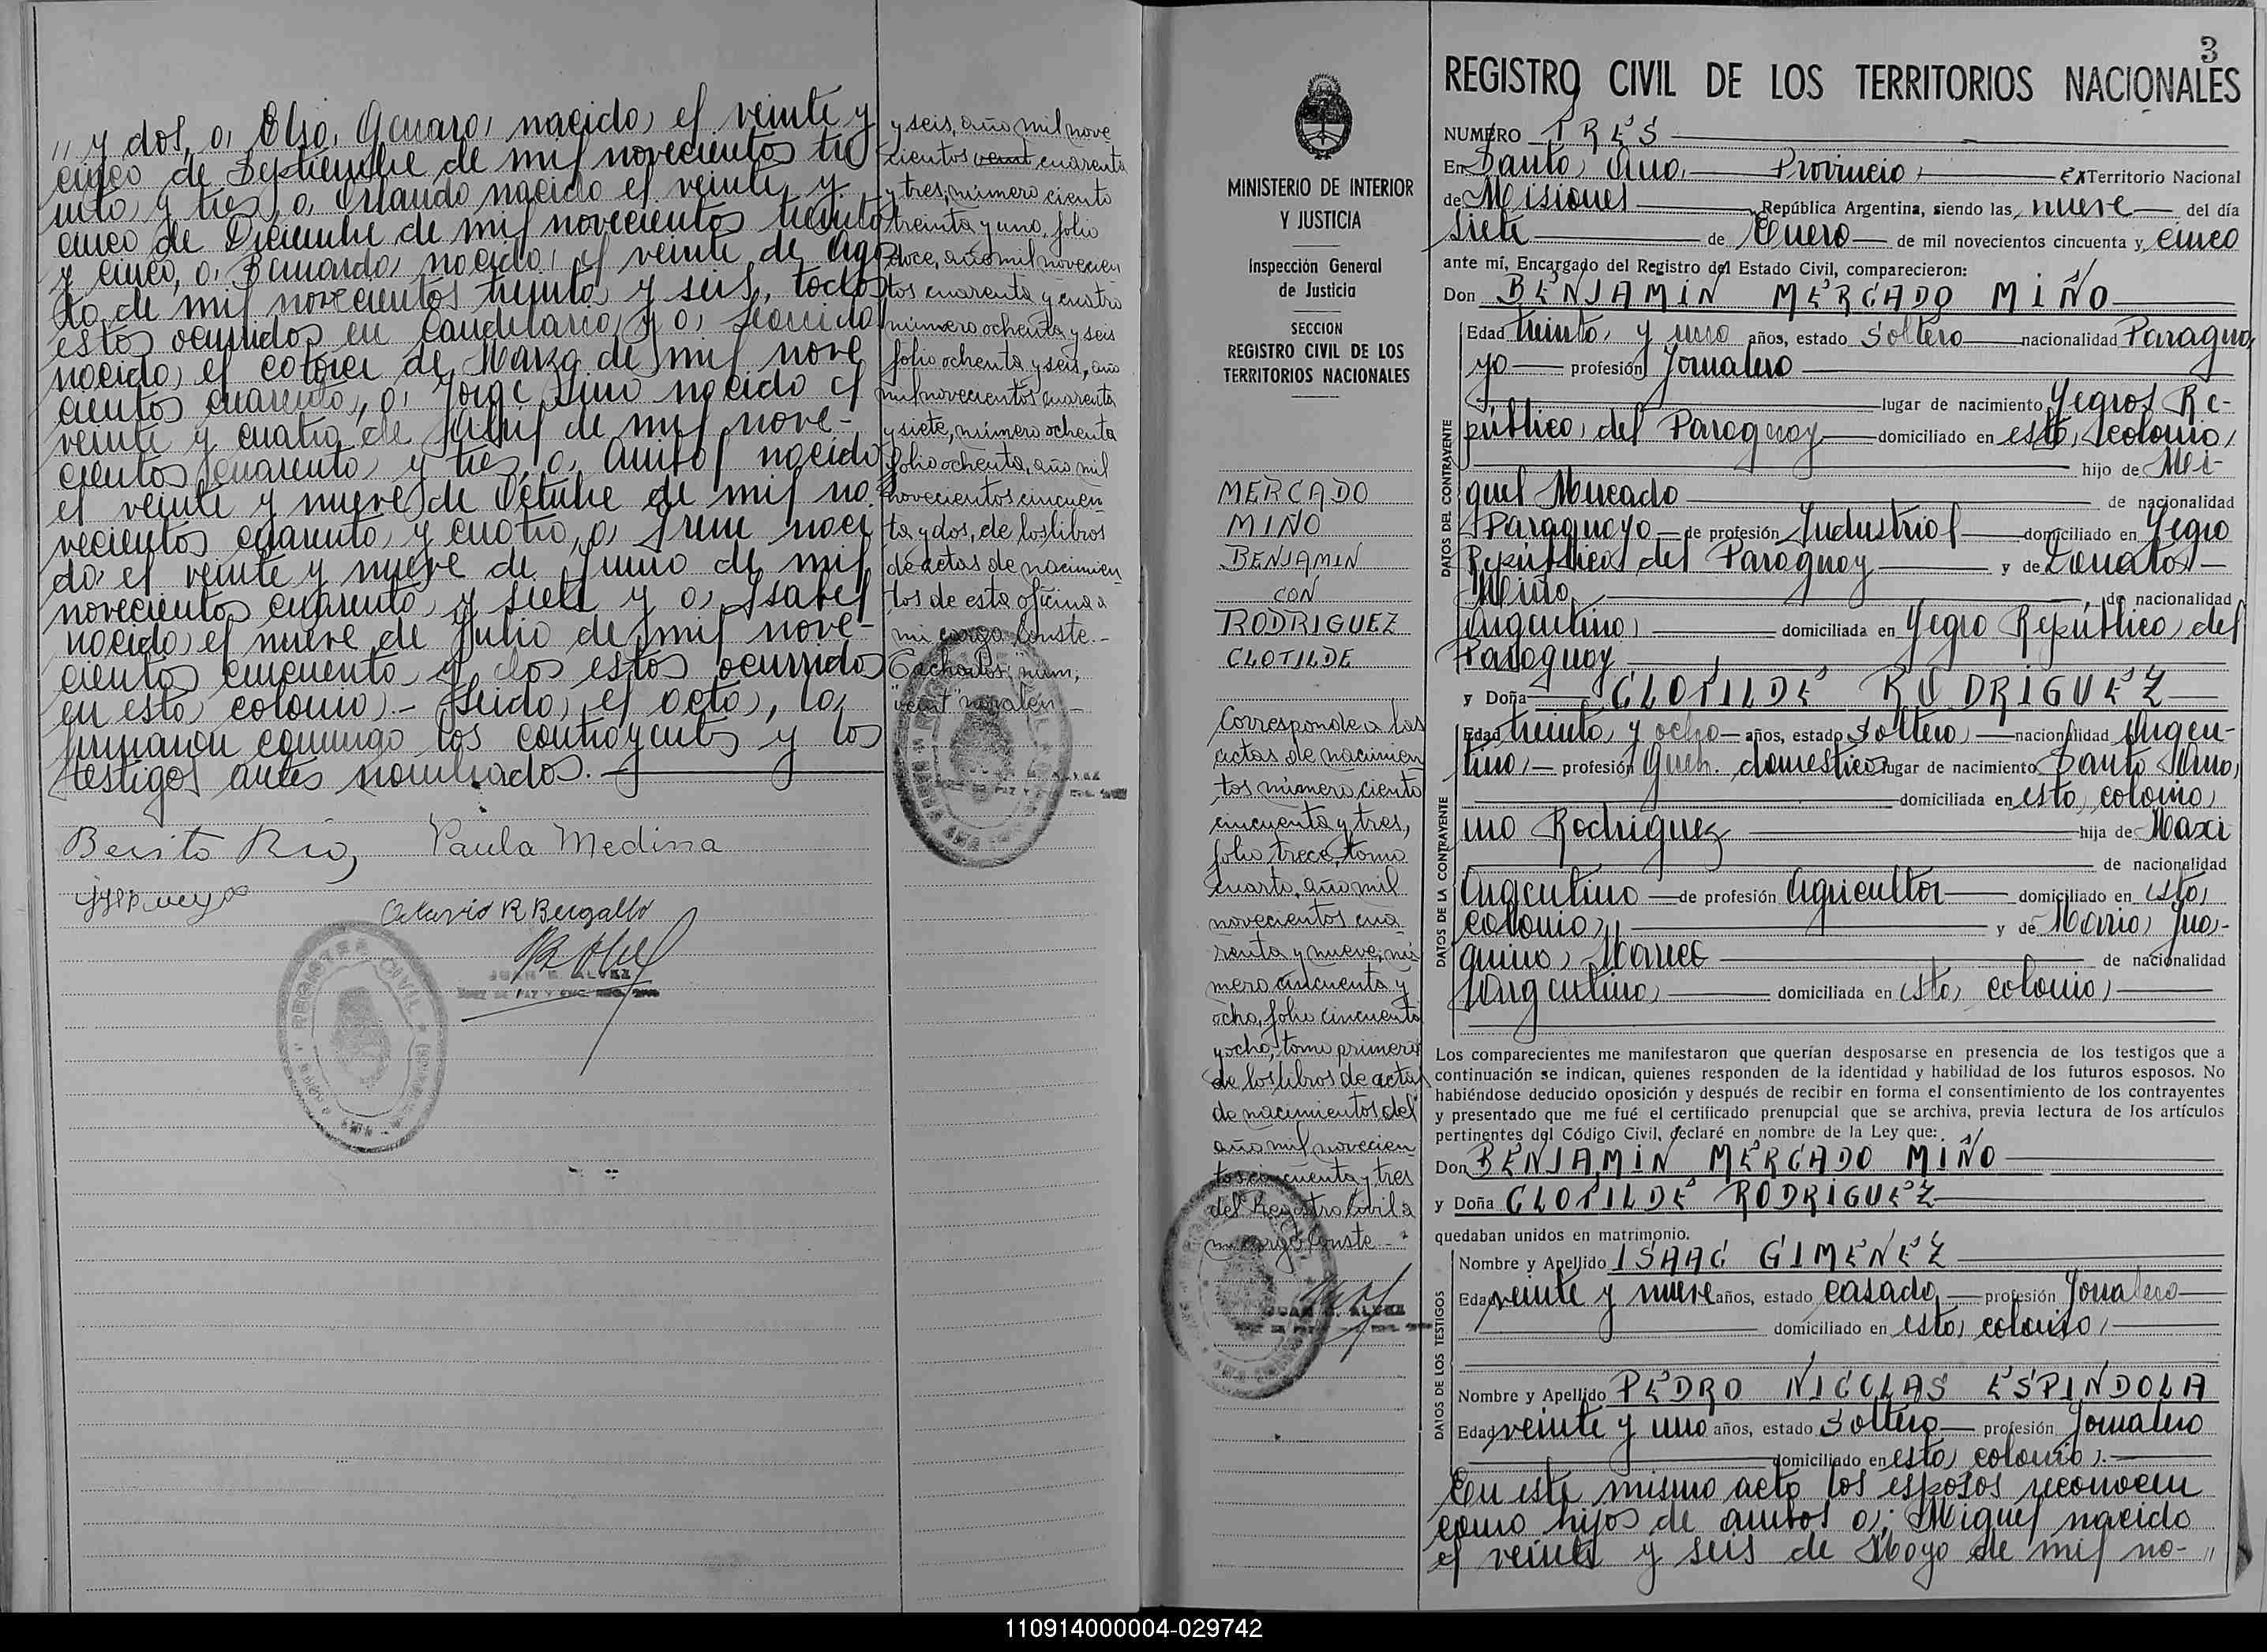 ,, y dos, a Elsa Genara, nacida el veinte y
cinco de Septiembre de mil novecientos trein
inta y tres, a Orlando nacido el veinte y
cinco de Diciembre de mil novecientos treinta
y cinco, a Bernarda, nacida el veinte de Agos
to de mil novecientos treinta y seis, todos
estos ocurridos en Candelaria, y a
nacida el catorce de Marzo de mil nove
cientos cuarenta, a Jorge nacido el
veinte y cuatro de de mil nove-
cientos cuarenta y tres, a nacido
el veinte y nueve de Octubre de mil no
vecientos cuarenta y cuatro, a Irene naci
da el veinte y nueve de Junio de mil
novecientos cuarenta y siete y a Isabel
nacida el nueve de Julio de mil nove-
cientos cincuenta y dos estos ocurridos
en esta colonia.- Leida el acta, la
firmaron conmigo los contrayentes y los
testigos antes nombrados.-
Benito Rios Paula Medina
Octavio R Bergallo
JUAN E. ALVEZ
y seis, año mil nove
cientos veint cuarenta
y tres, número ciento
treinta y uno, folio
doce, año mil novecien
tos cuarenta y cuatro
número ochenta y seis
folio ochenta y seis, año
mil novecientos cuarenta
y siete, número ochenta
folio ochenta, año mil
novecientos cincuen
ta y dos, de los libros
de actas de nacimien
tos de esta oficina a
mi cargo. Conste.-
Tachados: num;
"veint" no valen.-
3
REGISTRO CIVIL DE LOS TERRITORIOS NACIONALES
MINISTERIO DE INTERIOR
Y JUSTICIA
Inspección General
de Justicia
SECCION
REGISTRO CIVIL DE LOS
TERRITORIOS NACIONALES
MERCADO
MIÑO
BENJAMIN
CON
RODRIGUEZ
CLOTILDE
Corresponde a las
actas de nacimien
tos número ciento
cincuenta y tres,
folio trece, tomo
cuarto, año mil
novecientos cua
renta y nueve, nú
mero cincuenta y
ocho, folio cincuenta
y ocho, tomo primero
de los libros de actas
de nacimientos del
año mil novecien
tos cincuenta y tres
del Registro Civil a
mi cargo Conste.-
JUAN E. ALVEZ
NUMERO TRES
En Santa Ana, Provincia ex Territorio Nacional
de Misiones República Argentina, siendo las nueve del día
siete de Enero de mil novecientos cincuenta y cinco
ante mí, Encargado del Registro del Estado Civil, comparecieron:
Don BENJAMIN MERCADO MIÑO
DATOS DEL CONTRAYENTE
Edad treinta y uno años, estado soltero nacionalidad Paragua
yo profesión Jornalero
lugar de nacimiento Yegros Re-
pública del Paraguay domiciliado en esta colonia
hijo de Mi-
guel Mercado de nacionalidad
Paraguayo de profesión Industrial domiciliado en Yegro
República del Paraguay y de Donata
Miño de nacionalidad
Argentina domiciliada en Yegro República del
Paraguay
y Doña CLOTILDE RODRIGUEZ
DATOS DE LA CONTRAYENTE
Edad treinta y ocho años, estado soltera nacionalidad Argen-
tina profesión Queh. domesticos lugar de nacimiento Santa Ana
domiciliada en esta colonia
hija de Maxi
mo Rodriguez
de nacionalidad
Argentino de profesión Agricultor domiciliado en esta
colonia y de Maria Joa-
quina de nacionalidad
Argentina domiciliada en esta colonia
Los comparecientes me manifestaron que querían desposarse en presencia de los testigos que a
continuación se indican, quienes responden de la identidad y habilidad de los futuros esposos. No
habiéndose deducido oposición y después de recibir en forma el consentimiento de los contrayentes
y presentado que me fué el certificado prenupcial que se archiva, previa lectura de los artículos
pertinentes del Código Civil, declaré en nombre de la Ley que:
Don BENJAMIN MERCADO MIÑO
y Doña CLOTILDE RODRIGUEZ
quedaban unidos en matrimonio.
DATOS DE LOS TESTIGOS
Nombre y Apellido ISAAC GIMENEZ
Edad veinte y nueve años, estado casado profesión Jornalero
domiciliado en esta colonia
Nombre y Apellido PEDRO NICOLAS ESPINDOLA
Edad veinte y uno años, estado soltero profesión Jornalero
domiciliado en esta colonia.-
En este mismo acto los esposos reconocen
como hijos de ambos a: Miguel nacido
el veinte y seis de Mayo de mil no- ,,
110914000004-029742